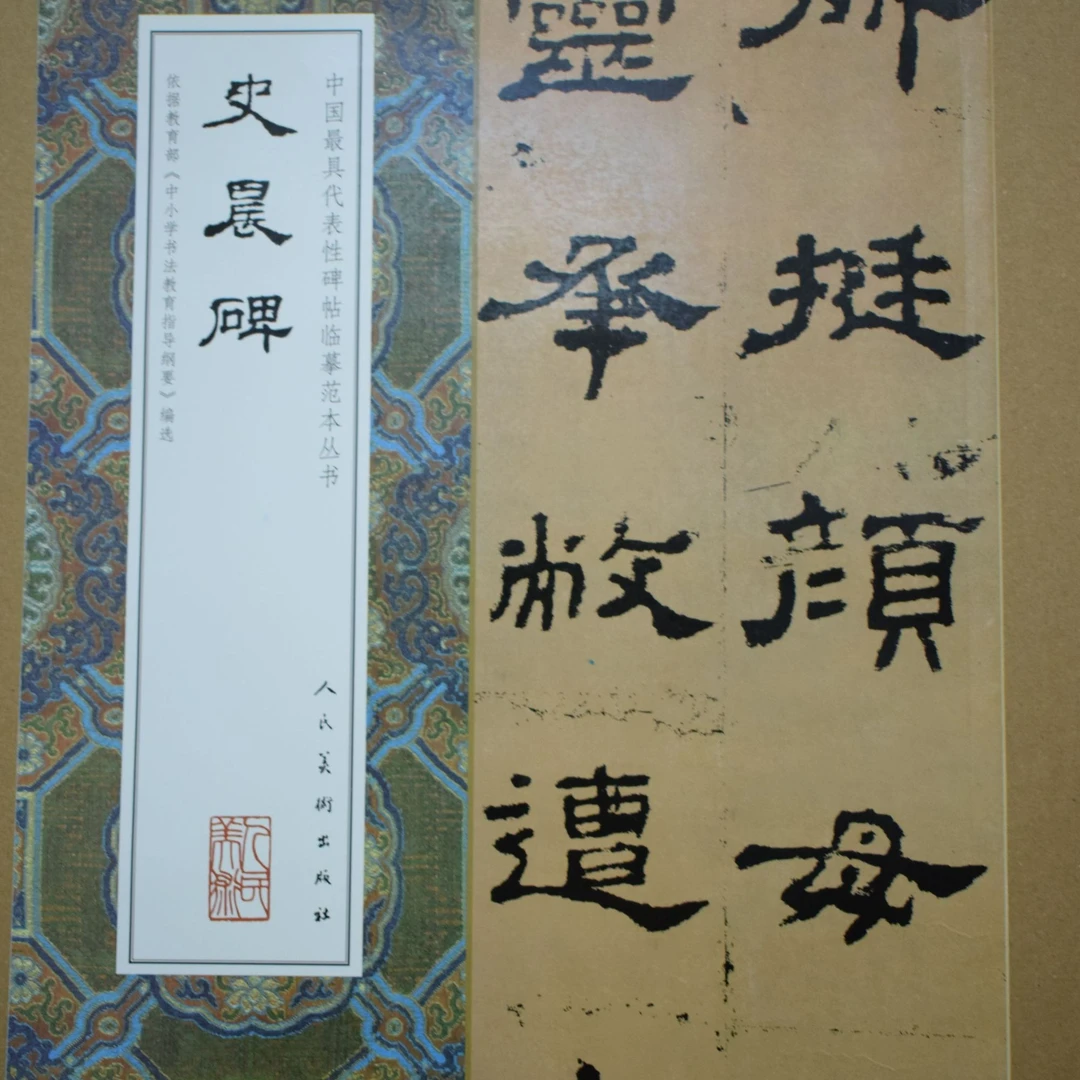 中国最具代表性碑帖临摹范本丛书
史晨碑
依据教育部《中小学书法教育指导纲要》编选
人民美術出版社
人民美術
挺顏母
靈承敝遭